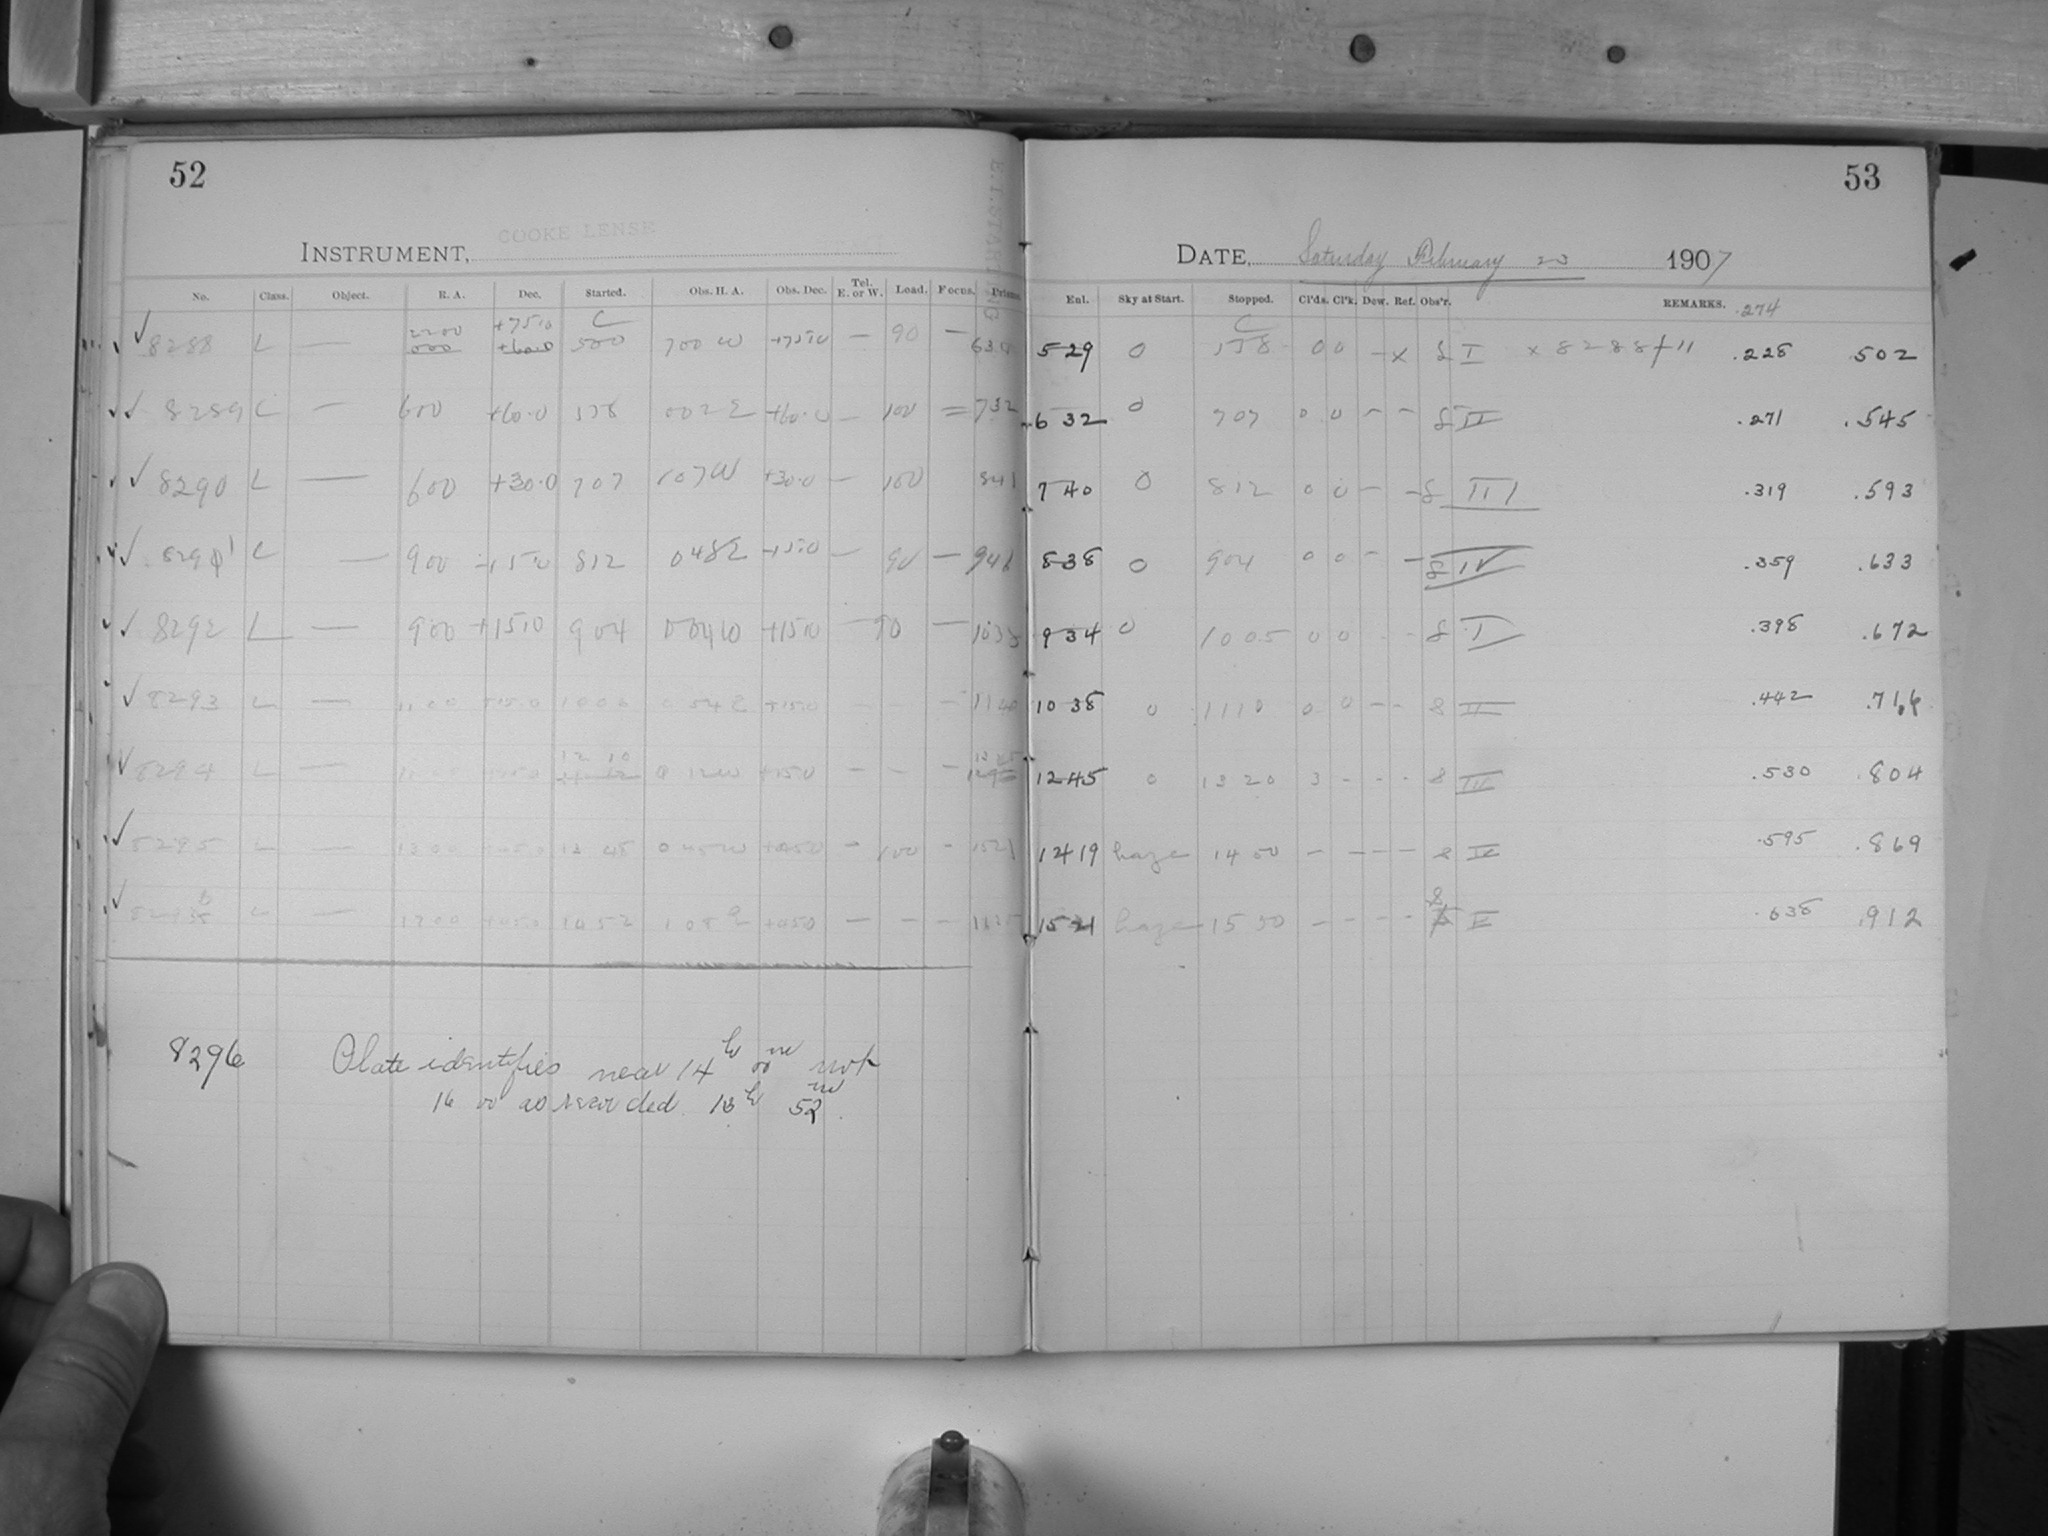 52
COOKE LENSE
INSTRUMENT,
No. Class. Object. R. A. Dec. Started. Obs. H. A. Obs. Dec. Tel. E. or W. Load. Focus. Prisms.
8288 L — 2200 000 +75.0 +60.0 C 500 700 W +75.0 — 90 —
8289 C — 600 +60.0 538 002 E +60.0 — 100 = 732
8290 L — 600 +30.0 707 107 W +30.0 — 100 841
8291 C — 900 +15.0 812 048 E +15.0 — 90 —
8292 L — 900 +15.0 904 004 W +15.0 — 90 —
8293 L — 1100 +15.0 1006 054 E +15.0 — - - 1140
8294 L — 12 10 0 12 W +15.0 — - -
8295 L — 1300 13 45 0 45 W — 100 -
L — 1452 1 08 E — - -
8296 Plate identifies near 14h 00m not
16 00 as recorded. 13h 52m.
53
DATE, Saturday February 23 1907
Enl. Sky at Start. Stopped. Cl'ds. Cl'k. Dew. Ref. Obs'r. REMARKS. .274
529 0 C 538 0 0 - x 8 I x 8288 + 11 .228 .502
632 0 707 0 0 - - 8 II .271 .545
740 0 812 0 0 - - 8 III .319 .593
838 0 904 0 0 - - 8 IV .359 .633
934 0 1005 0 0 - - 8 I .398 .672
1038 0 1110 0 0 - - 8 II .442 .716
1245 0 1320 3 - - - 8 III .530 .804
1419 haze 1450 - - - - 8 IV .595 .869
1521 haze 1550 - - - - 8 .638 .912